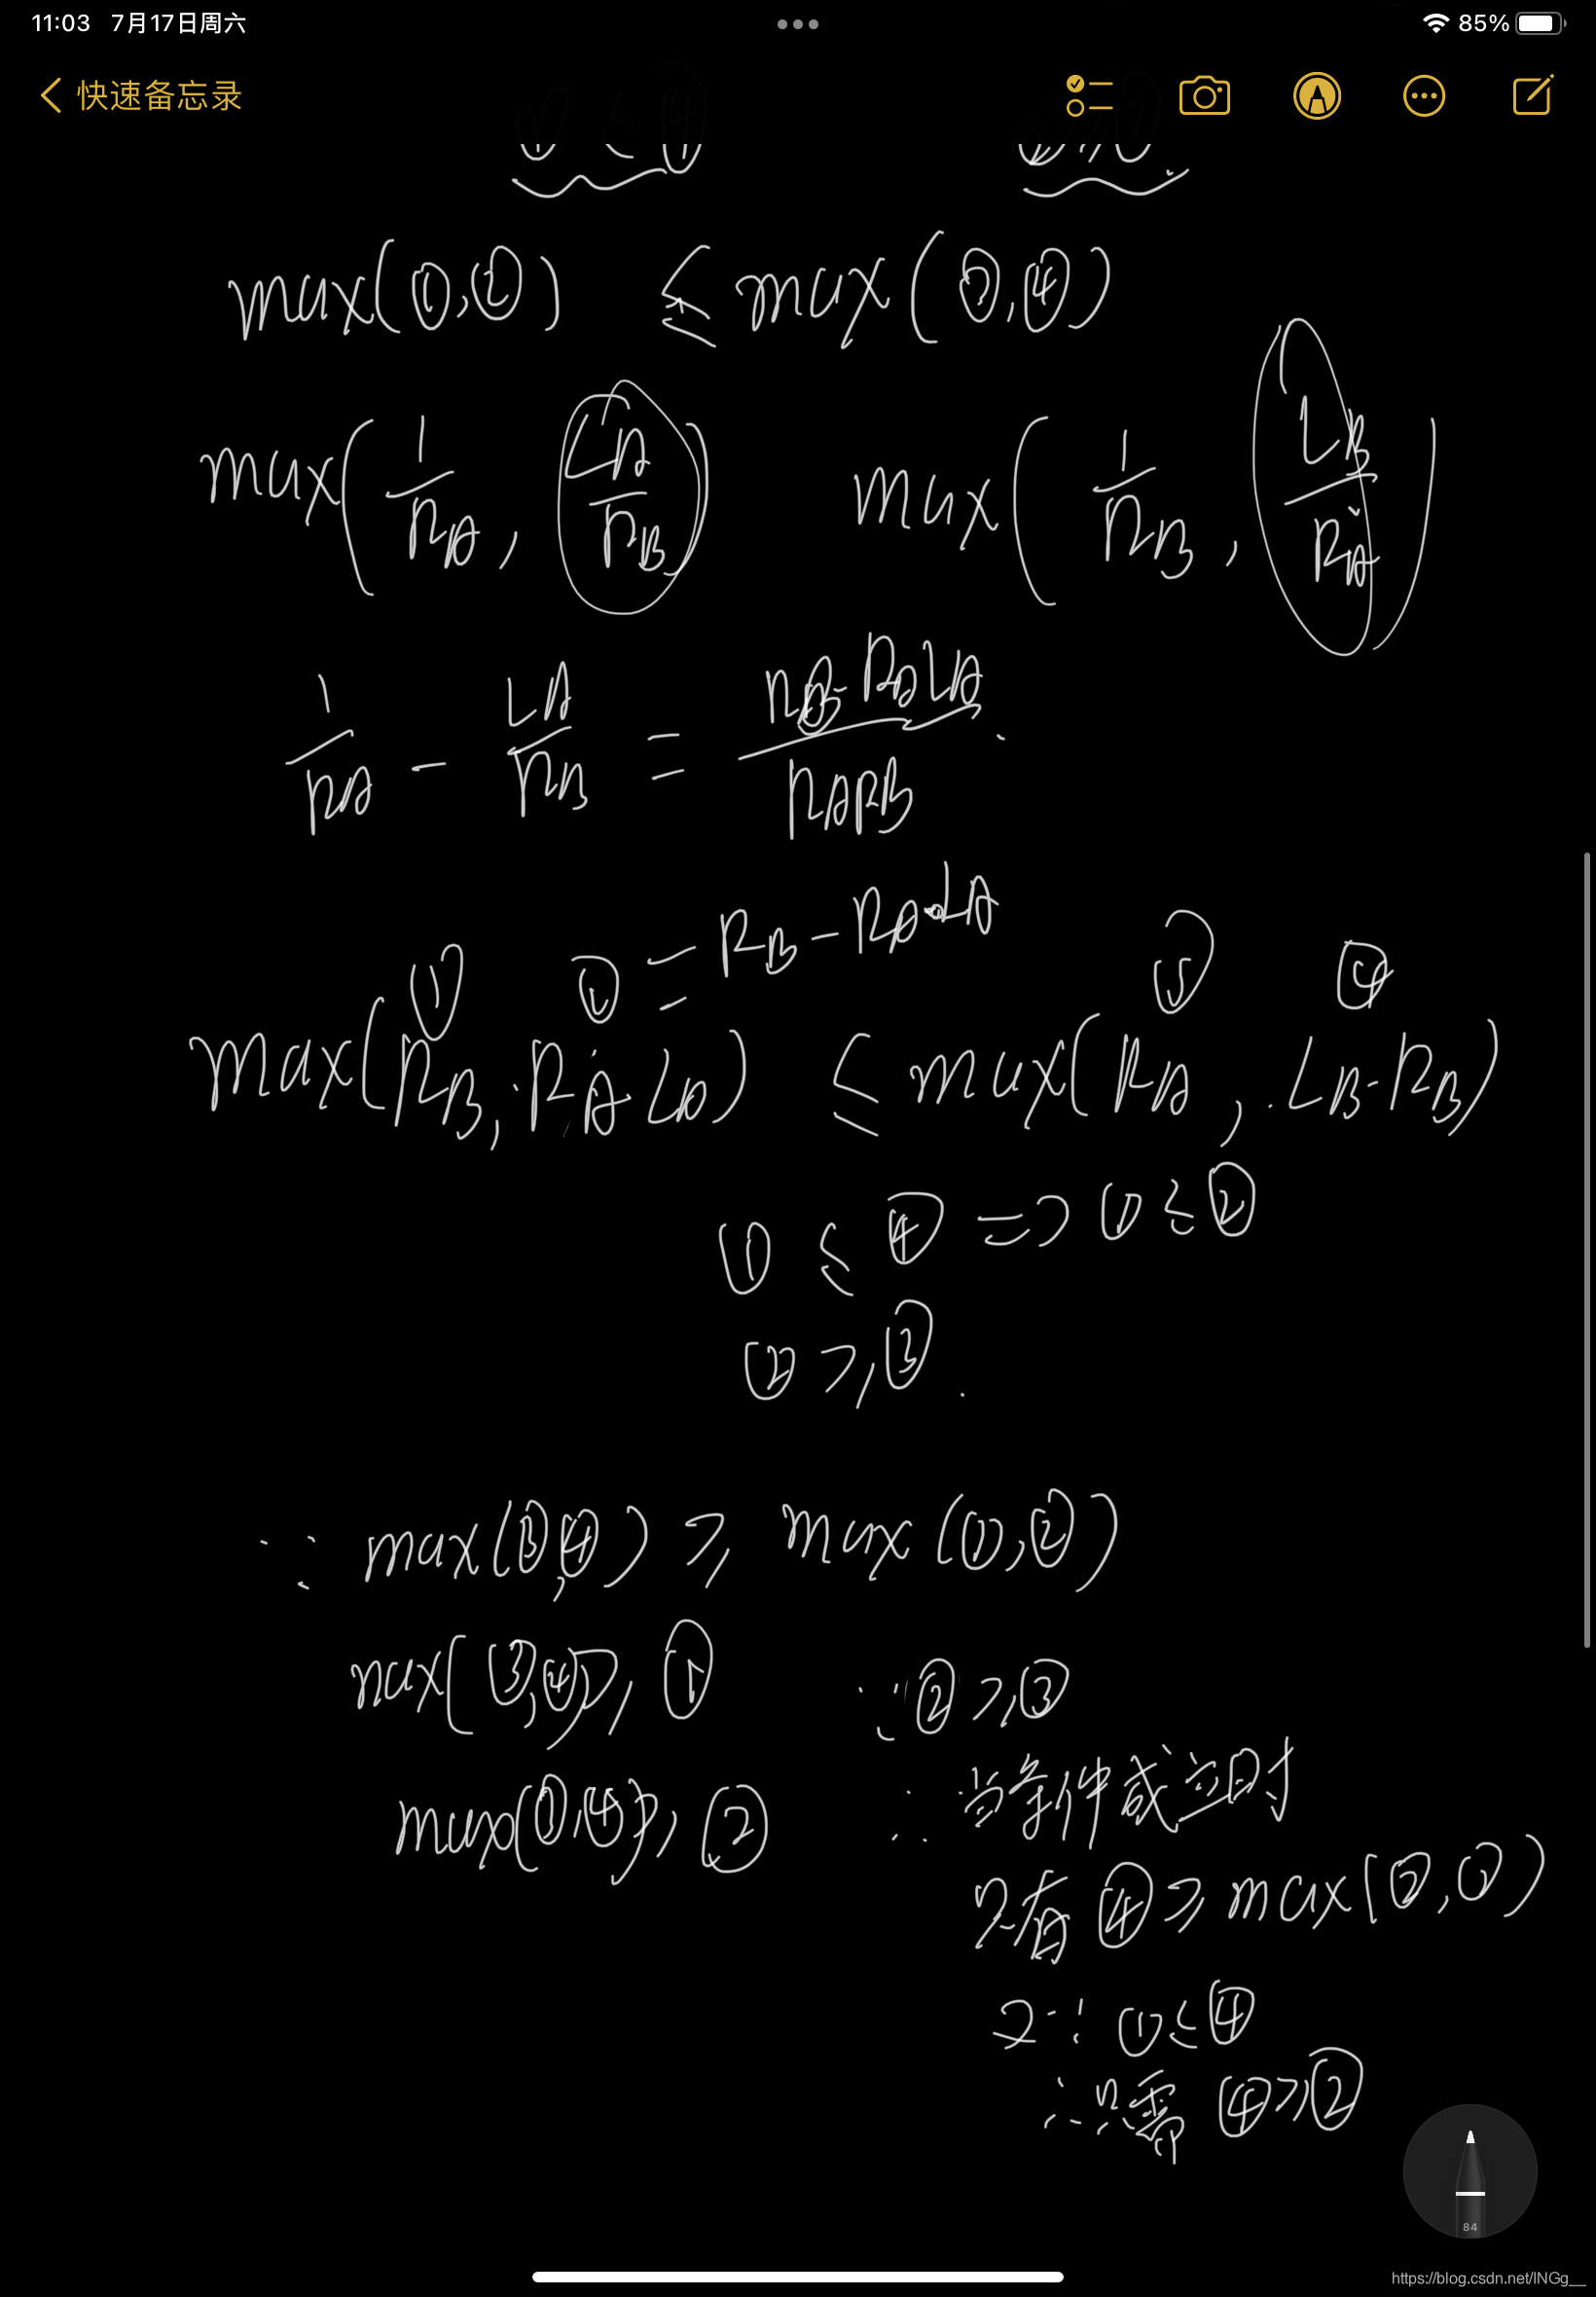 11:03 7月17日周六
85%
快速备忘录
① ≤ ④
max(①,②) ≤ max(③,④)
max(1/RA, LA/RB) max(1/RB, LB/RA)
1/RA - LA/RB = (RB-RALA)/(RARB)
= RB - RA·LA
① ② ③ ④
max(RB, RA·LA) ≤ max(RA, LB·RB)
① ≤ ④ => ① ≤ ②
② ≥ ③
∵ max(③,④) ≥ max(①,②)
max(③,④) ≥ ① ∵ ② ≥ ③
max(③,④) ≥ ② ∴ 当条件成立时
只有 ④ ≥ max(②,①)
又∵ ① ≤ ④
∴只需 ④ ≥ ②
84
https://blog.csdn.net/INGg__